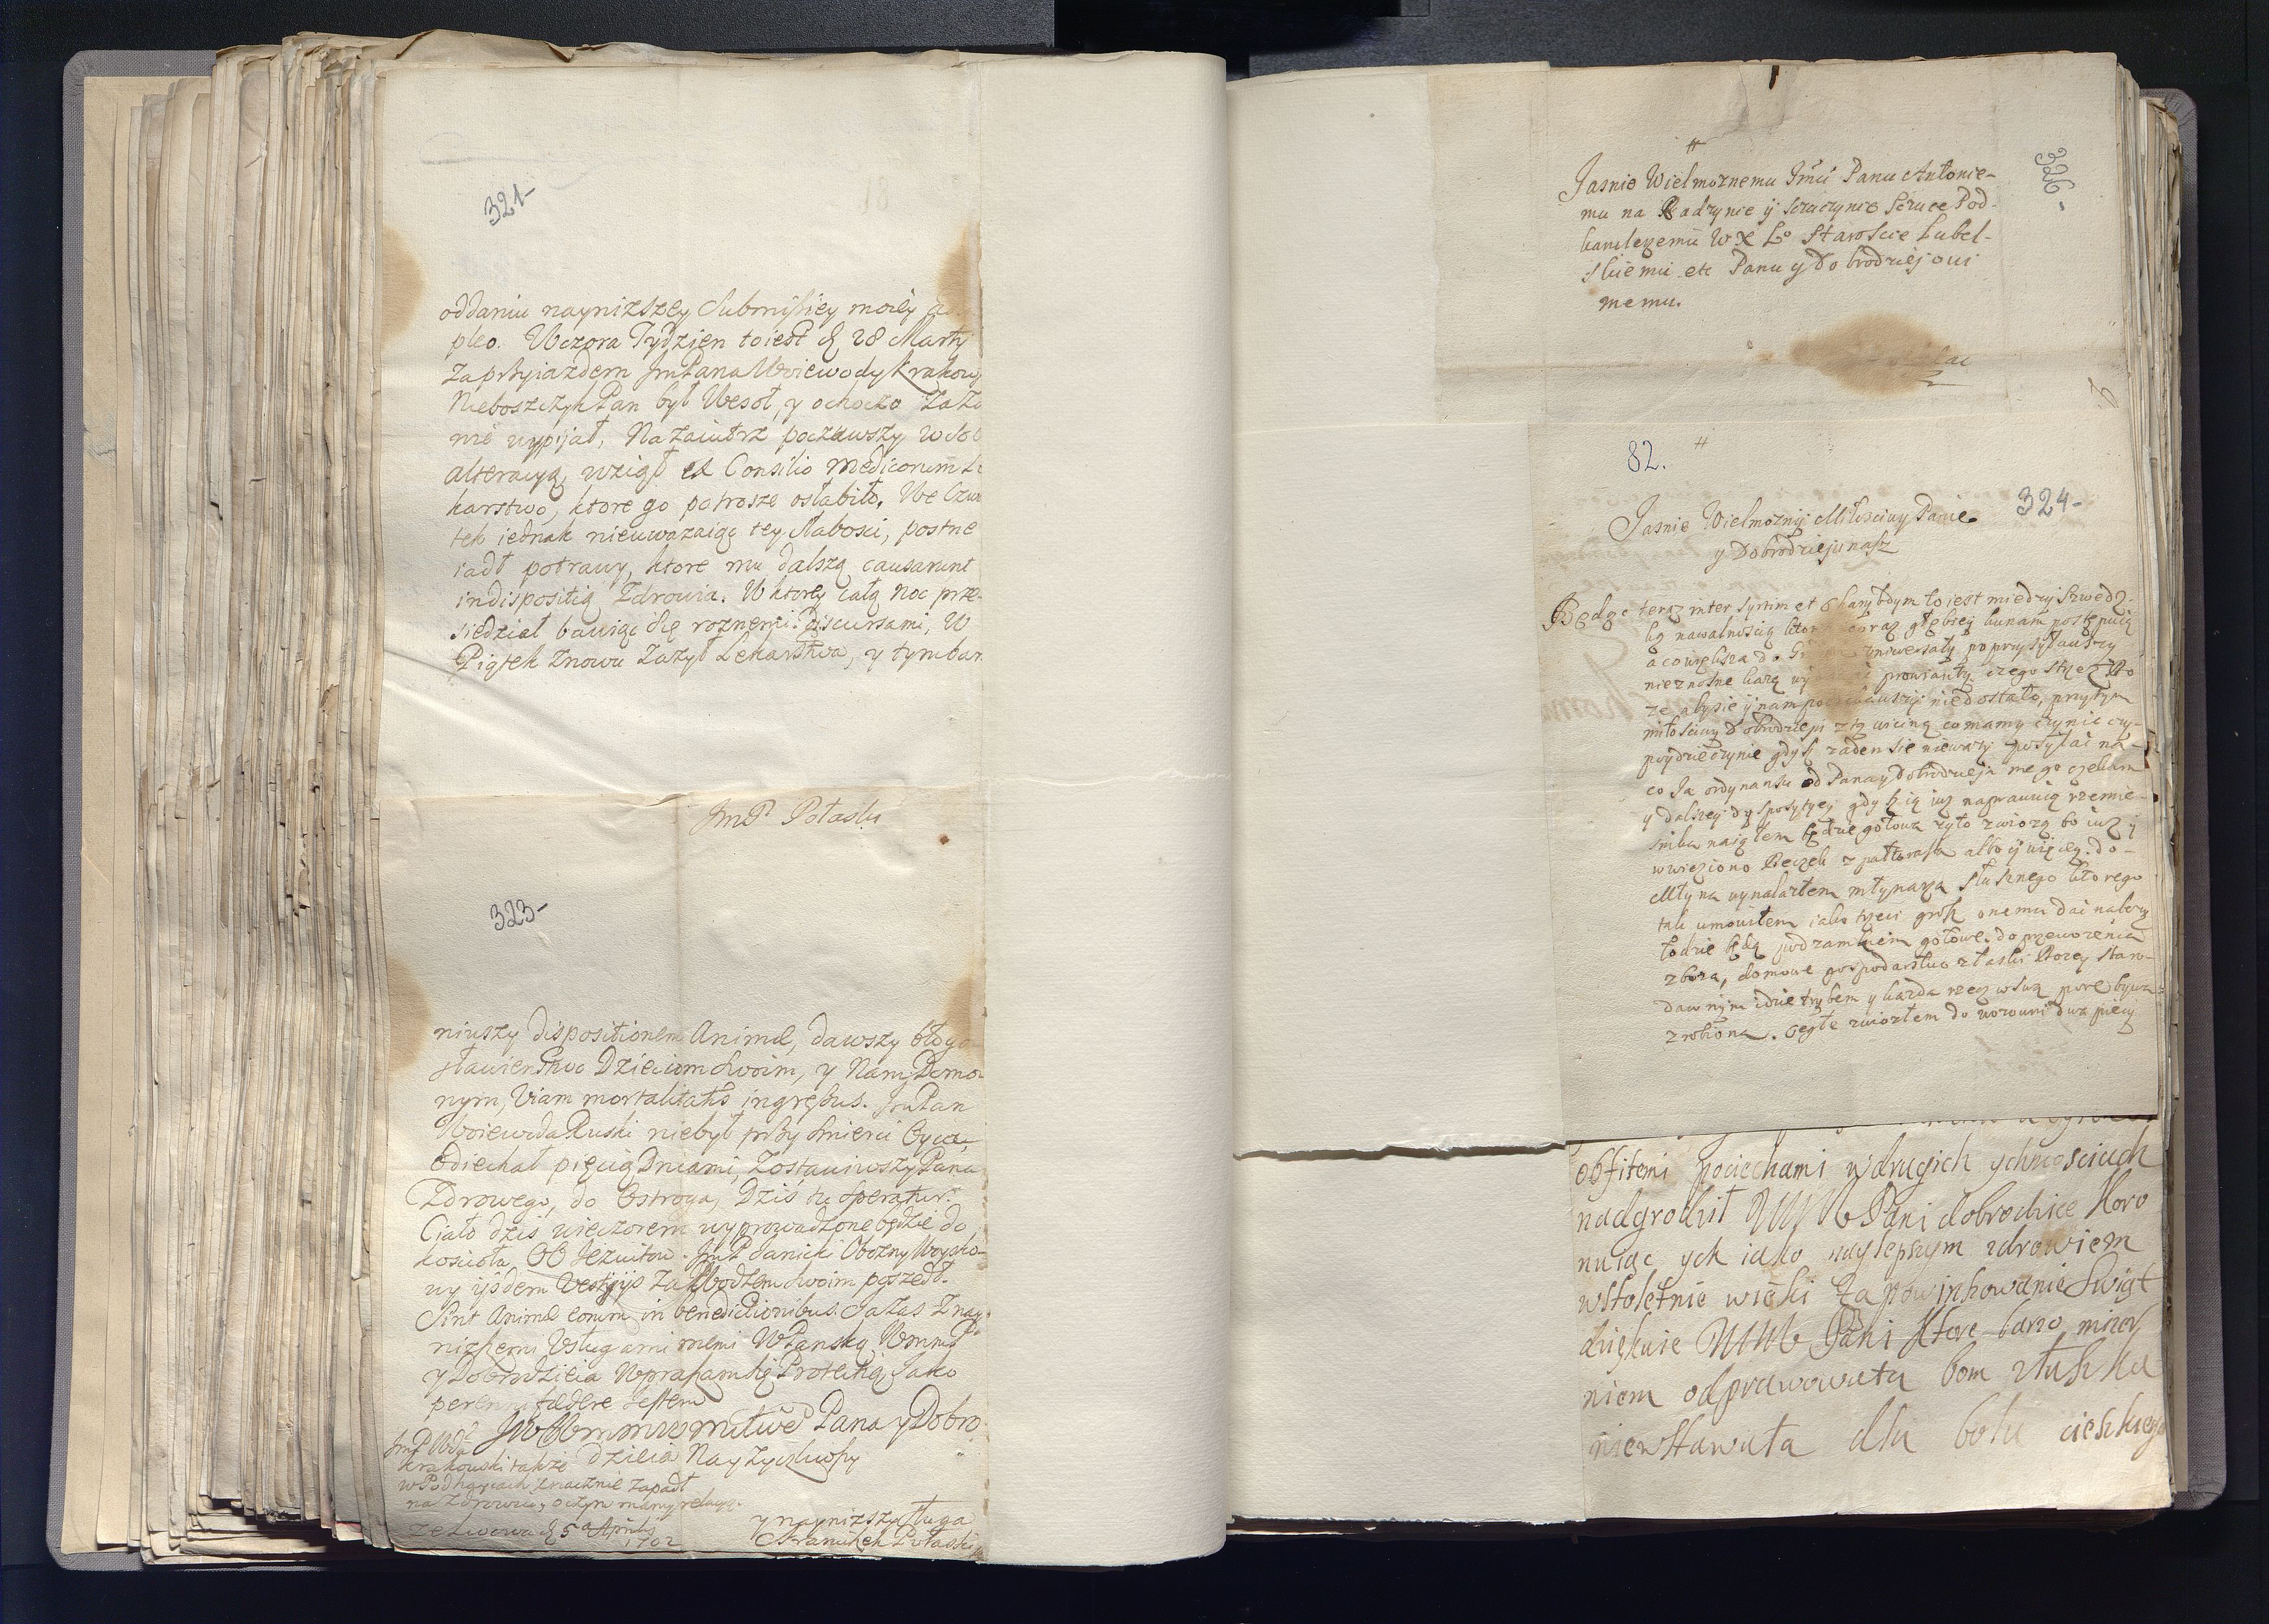 321-
oddaniu nayniższey Submissiey moiey
pleo. Wczora Tydzien toiest d 28 Martij
za przyiazdem JmPana Woiewody Krakow
Nieboszczyk Pan był Wesoł, y ochoczo Za Zd
nie wypijał, Nazaiutrz poczuwszy w sob
alteracyą, wziął ex Consilio Medicorum Le
karstwo, ktore go potrosze osłabiło. We Czwar
tek iednak nieuwazaiąc tey słabosci, postne
iadł potrawy, ktore mu dalszą causarunt
indispositią Zdrowia. W ktorey całą noc prze-
siedział bawiąc się roznemi discursami, W
Piątek znowu Zazył Lekarstwa, y tymbar
JmP Potaski
323-
niuszy dispositionem Animæ, dawszy błogo
sławienstwo Dzieciom swoim, y Nam Domo
nym, Viam mortalitatis ingressus. JmPan
Woiewoda Ruski niebył przy smierci Oyca,
Odiechał pięcią Dniami, Zostawiwszy Pana
Zdrowego, do Ostroga, Dziś tu speratur.
Ciało dzis wieczorem wyprowadzone będzie do
koscioła OO Jezuitow. JmP Janicki Obozny Woysko-
wy ijsdem Vestigijs za Wodzem swoim poszedł.
Sint Animæ eorum in benedictionibus. Ja zas z nay-
niższemi Vsługami memi WPanską Wmm Pa
y Dobrodzieia Wpraszam się Protectią Jako
perenni fædere Jestem
JWWmmm Pana y Dobro
dzieia Nayzyczliwszy
JmP Wda
Krakowski takze
w Podhaycach znacznie zapadł
na zdrowiu, o czym mamy relacyą.
ze Lwowa d 5 Aprilis
1702
y naynizszy sługa
Franciszek Potaski
326-
Jasnie Wielmoznemu Jmci Panu Antonie-
mu na Radzynie ÿ Szczuczynie Szczuce Pod-
kanclerzemu W X Lo Staroscie Lubel-
skiemu etc Panu y Dobrodziejowi
memu.
82.
324-
Jasnie Wielmozny Miłosciwy Panie
y Dobrodzieju nasz
Będąc teraz inter Syrtim et Charybdym to iest miedzy Szwedz-
ką nawalnoscią ktora coraz głębiey ku nam postępuią
a co większa do uniwersały poprzysyławszy
nieznosne każą prowianty czego strzez Bo
ze aby sie y nam nie dostało, przytym
miłosciwy Dobrodzieju z tą wiciną co mamy czynic czy
poydzie czynie gdysz zaden sie niewazy posyłac na
co Ja ordynansu od Pana y Dobrodzieja mego czekam
y dalszey dyspozytyey gdysz ią iusz naprawuią rzemie-
snika naiąłem będzie gotowa zyto zwiozą bo iusz y
wwieziono Beczek z połtorasta albo y więcey. do-
Młyna wynalazłem młynarza słusznego ktorego
tak umowiłem iako trzeci grosz onemu dac nalezy
łodzie będą pod zamkiem gotowe do przewozenia
zboza, domowe gospodarstwo z łaski Bozey staro-
dawnym idzie trybem y kazda rzecz w swą porę bywa
zrobiona. Cegłe zwiozłem do worowni dwa piecy
obfitemi pociechami w drugich ychmosciach
nadgrodził WMM Pani dobrodzice Koro
nuiąc ych iako naylepszym zdrowiem
w stoletnie wieki za powinszowanie Swiąt
dziękuie WMM Pani Ktore barzo mizer
niem odprawowała bom z łuszka
niewstawała dla bolu cieszkiego